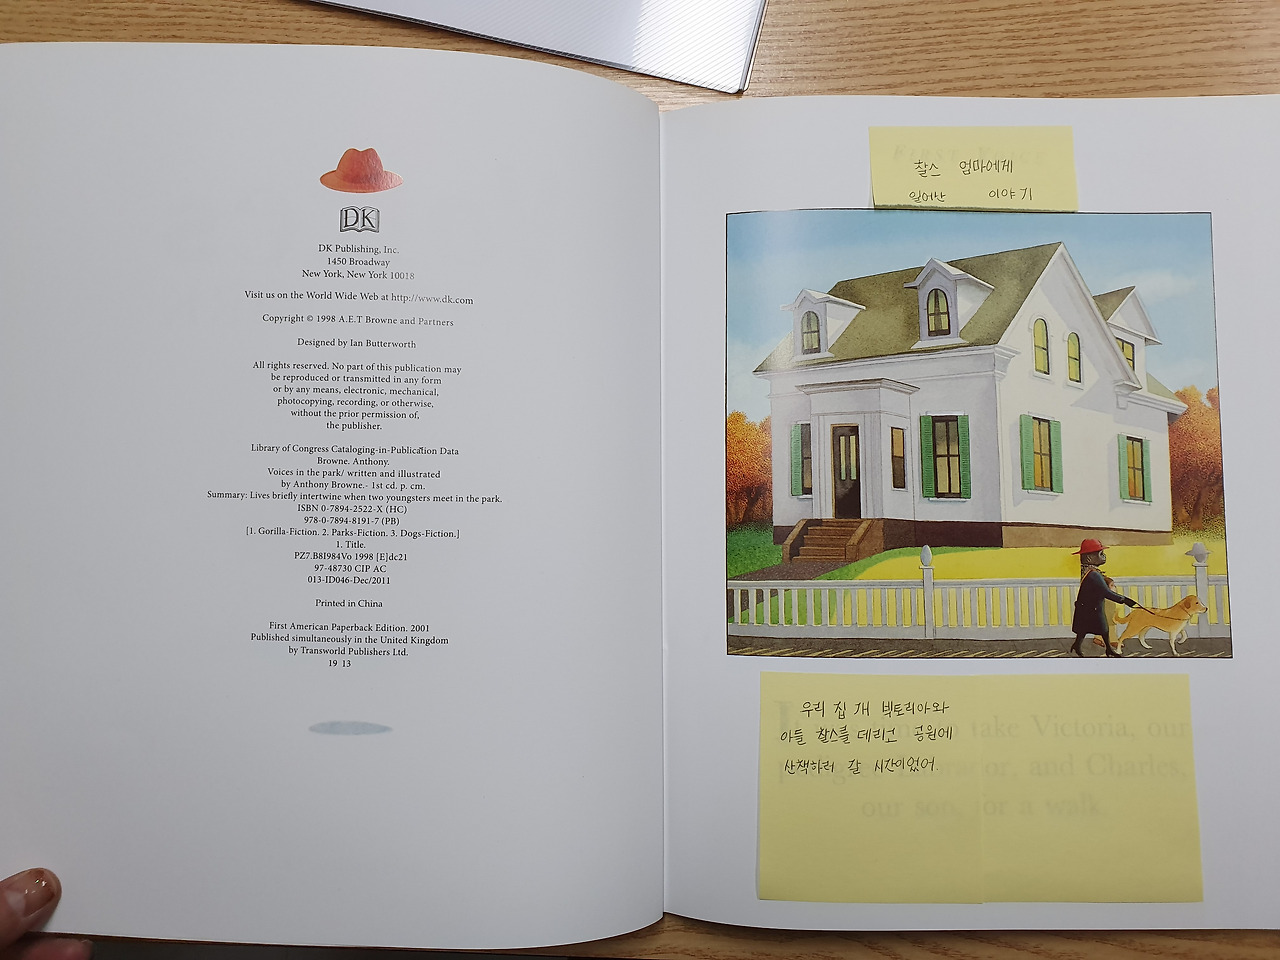 DK
DK Publishing, Inc.
1450 Broadway
New York, New York 10018
Visit us on the World Wide Web at http://www.dk.com
Copyright © 1998 A.E.T Browne and Partners
Designed by Ian Butterworth
All rights reserved. No part of this publication may
be reproduced or transmitted in any form
or by any means, electronic, mechanical,
photocopying, recording, or otherwise,
without the prior permission of,
the publisher.
Library of Congress Cataloging-in-Publication Data
Browne. Anthony.
Voices in the park/ written and illustrated
by Anthony Browne.- 1st cd. p. cm.
Summary: Lives briefly intertwine when two youngsters meet in the park.
ISBN 0-7894-2522-X (HC)
978-0-7894-8191-7 (PB)
[1. Gorilla-Fiction. 2. Parks-Fiction. 3. Dogs-Fiction.]
1. Title.
PZ7.B8I984Vo 1998 [E]dc21
97-48730 CIP AC
013-ID046-Dec/2011
Printed in China
First American Paperback Edition. 2001
Published simultaneously in the United Kingdom
by Transworld Publishers Ltd.
19 13
찰스 엄마에게
일어난 이야기
우리 집 개 빅토리아와
아들 찰스를 데리고 공원에
산책하러 갈 시간이었어.
take Victoria, our
or, and Charles,
our son, for a walk